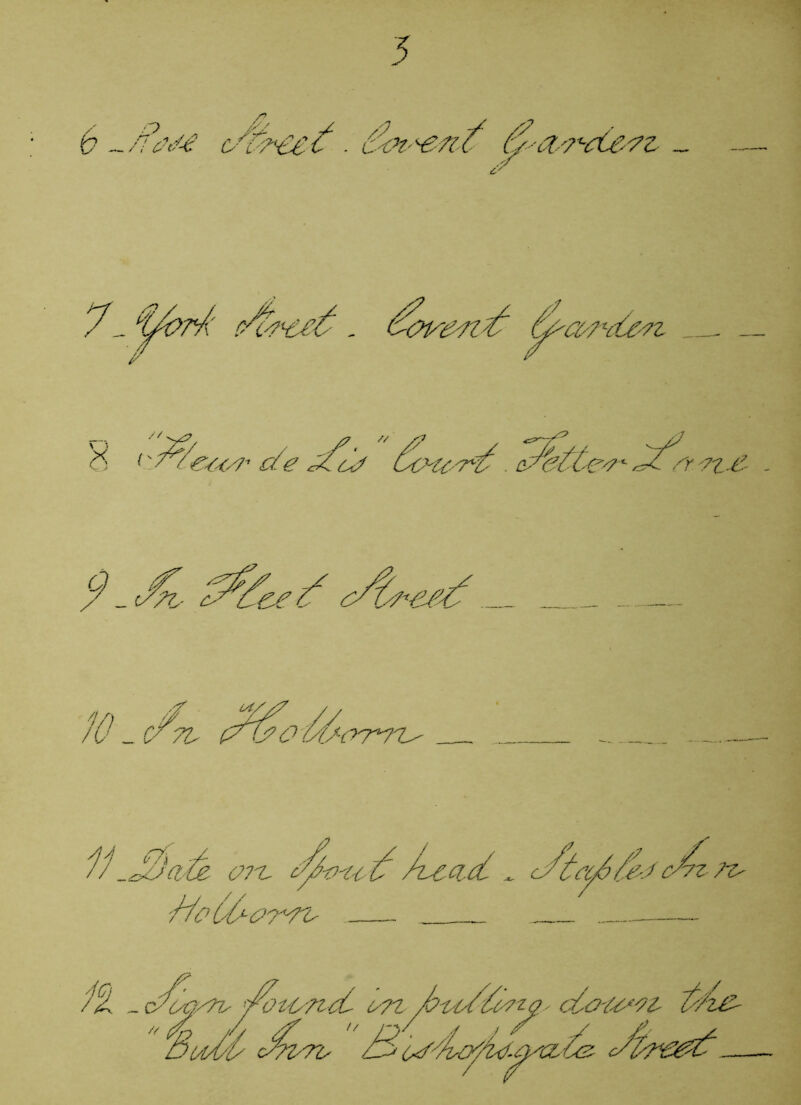 5
6 - Rose Street . Covent Garden -
7 - York Street . Covent Garden
8 "Fleur de Lis" Court . Fetter Lane -
9 - In Fleet Street
10 - In Holborn
11 - Date on Spout head - Staples Inn
Holborn
12 - Sign found in pulling down the
"Bull Inn" Bishopsgate Street